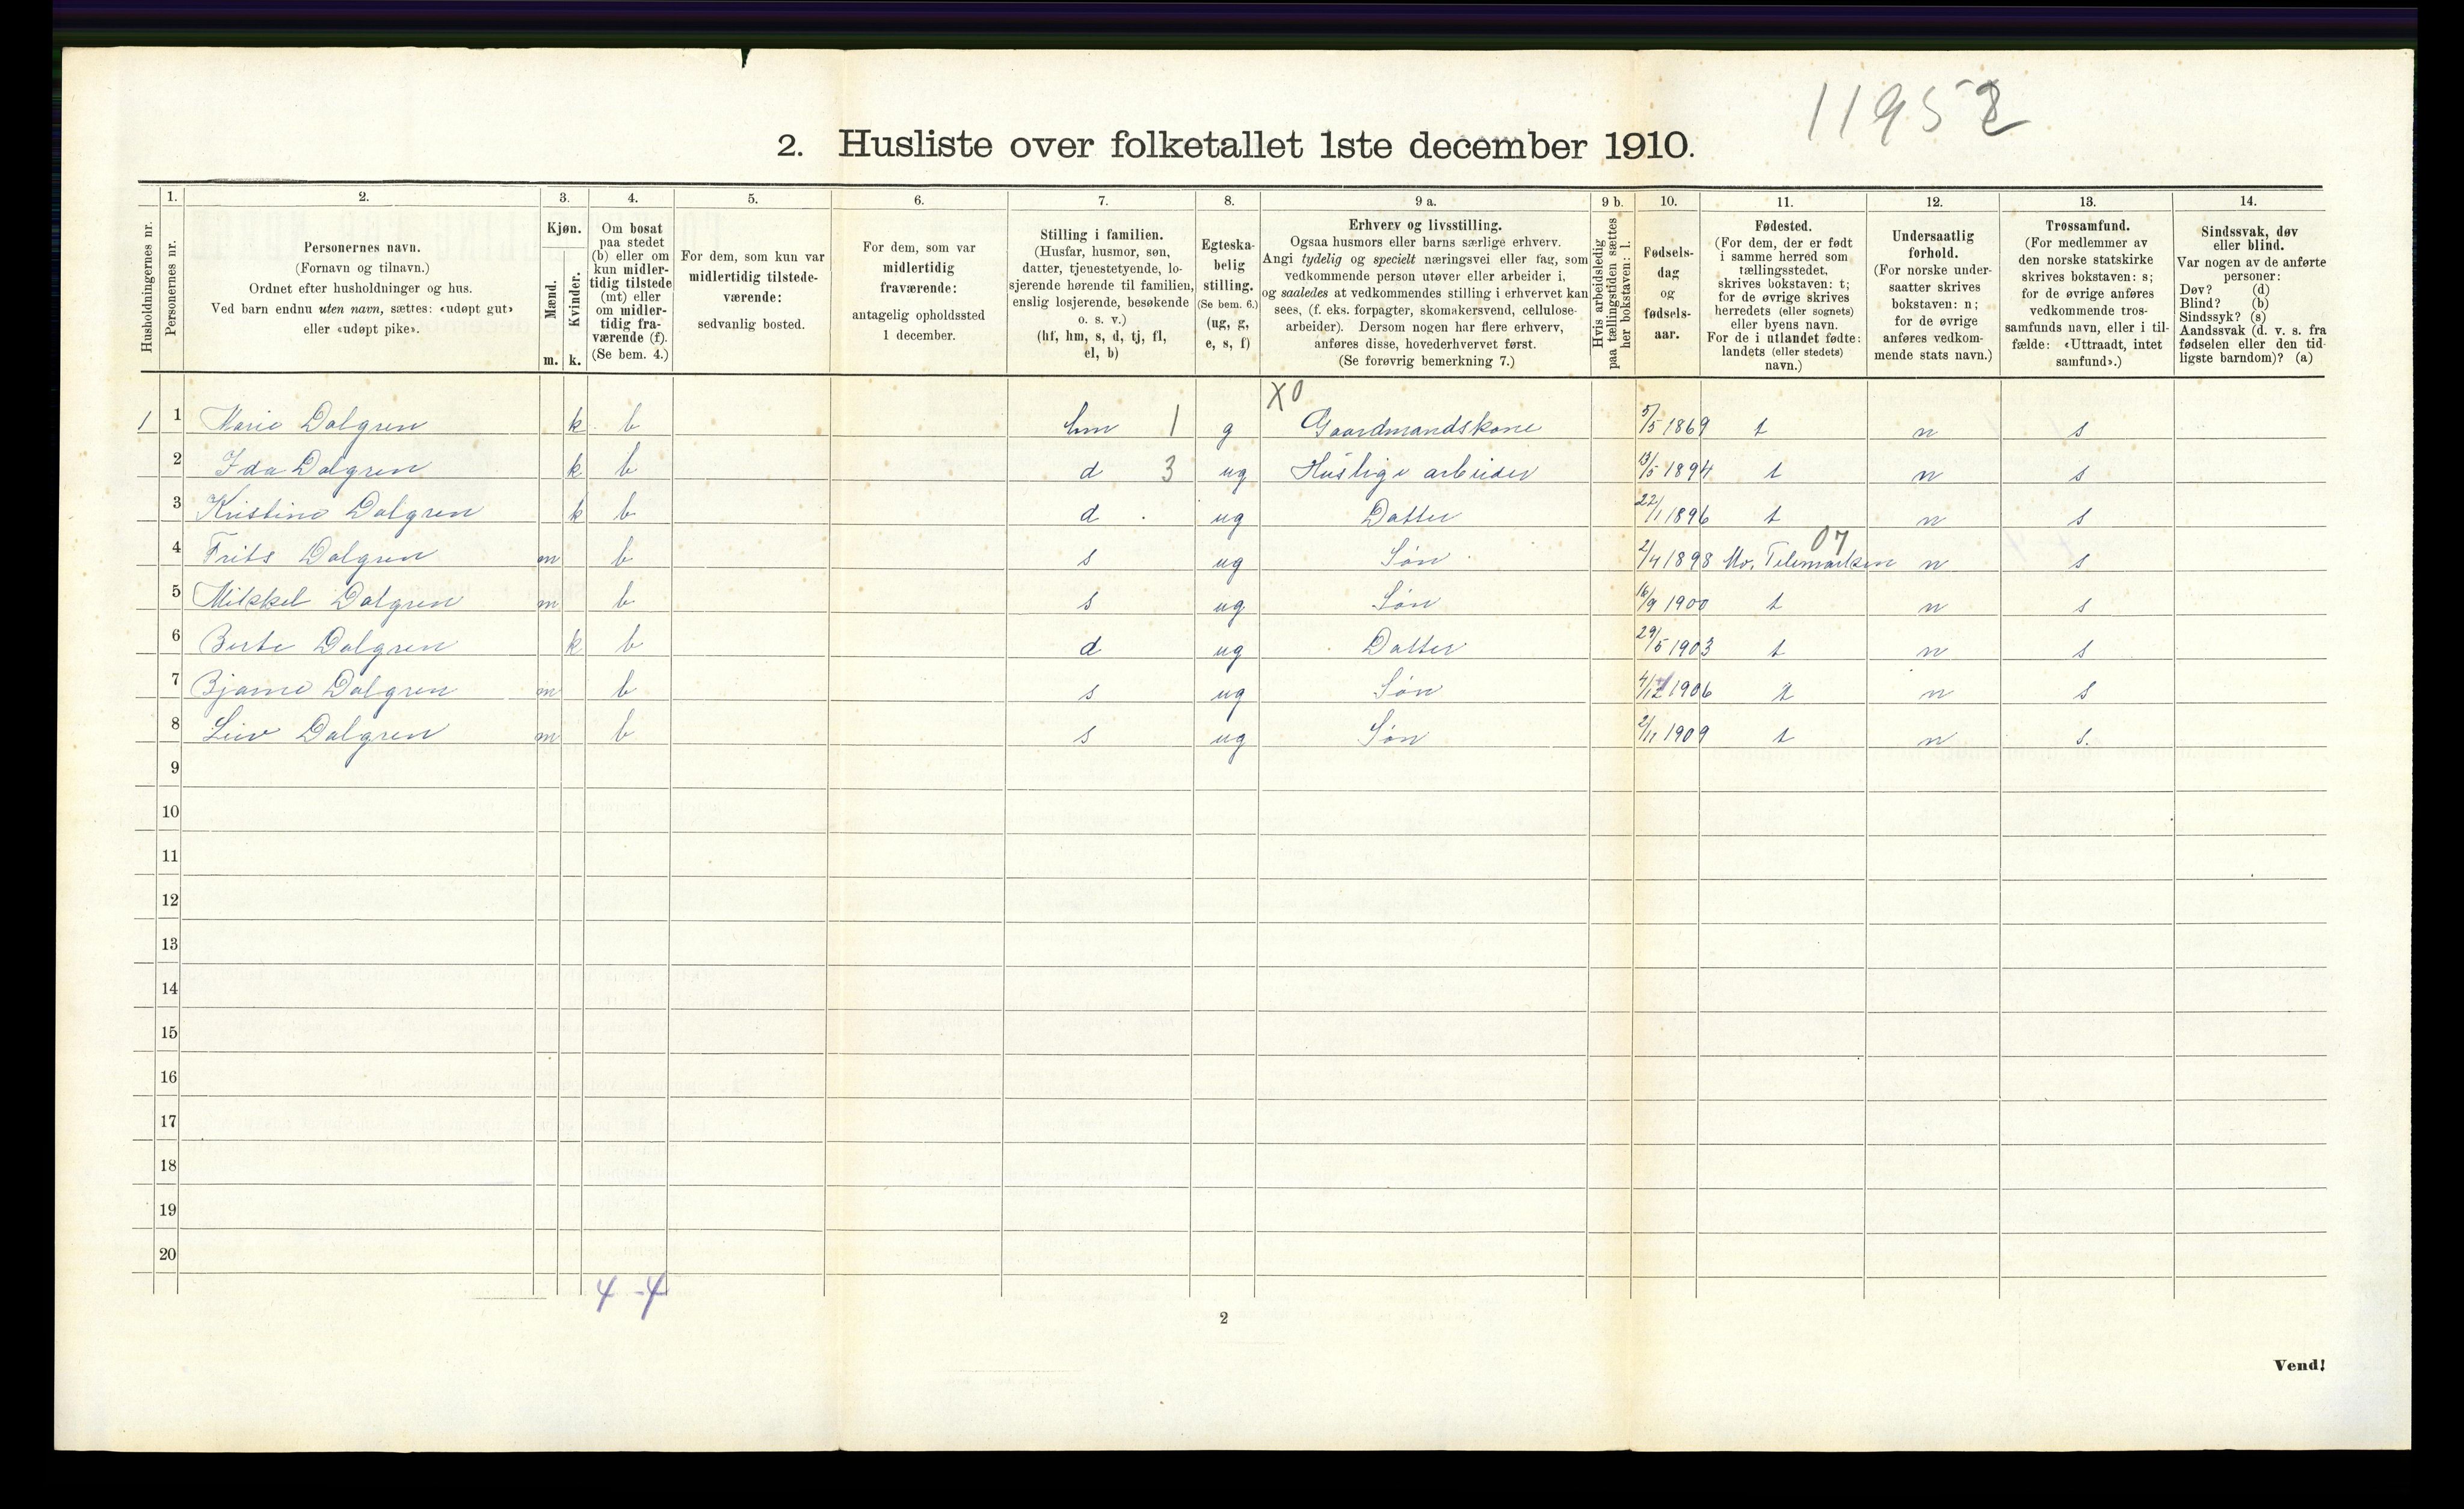 1195
2. Husliste over folketallet 1ste december 1910.
1. 2. 3. 4. 5. 6. 7. 8. 9 a. 9 b. 10. 11. 12. 13. 14.
Husholdningernes nr.
Personernes nr.
Personernes navn.
(Fornavn og tilnavn.)
Ordnet efter husholdninger og hus.
Ved barn endnu uten navn, sættes: «udøpt gut»
eller «udøpt pike».
Kjøn.
Mænd.
m.
Kvinder.
k.
Om bosat
paa stedet
(b) eller om
kun midler-
tidig tilstede
(mt) eller
om midler-
tidig fra-
værende (f).
(Se bem. 4.)
For dem, som kun var
midlertidig tilstede-
værende:
sedvanlig bosted.
For dem, som var
midlertidig
fraværende:
antagelig opholdssted
1 december.
Stilling i familien.
(Husfar, husmor, søn,
datter, tjenestetyende, lo-
sjerende hørende til familien,
enslig losjerende, besøkende
o. s. v.)
(hf, hm, s, d, tj, fl,
el, b)
Egteska-
belig
stilling.
(Se bem. 6.)
(ug, g,
e, s, f)
Erhverv og livsstilling.
Ogsaa husmors eller barns særlige erhverv.
Angi tydelig og specielt næringsvei eller fag, som
vedkommende person utøver eller arbeider i,
og saaledes at vedkommendes stilling i erhvervet kan
sees, (f. eks. forpagter, skomakersvend, cellulose-
arbeider). Dersom nogen har flere erhverv,
anføres disse, hovederhvervet først.
(Se forøvrig bemerkning 7.)
Hvis arbeidsledig
paa tællingstiden sættes
her bokstaven: l.
Fødsels-
dag
og
fødsels-
aar.
Fødested.
(For dem, der er født
i samme herred som
tællingsstedet,
skrives bokstaven: t;
for de øvrige skrives
herredets (eller sognets)
eller byens navn.
For de i utlandet fødte:
landets (eller stedets)
navn.)
Undersaatlig
forhold.
(For norske under-
saatter skrives
bokstaven: n;
for de øvrige
anføres vedkom-
mende stats navn.)
Trossamfund.
(For medlemmer av
den norske statskirke
skrives bokstaven: s;
for de øvrige anføres
vedkommende tros-
samfunds navn, eller i til-
fælde: «Uttraadt, intet
samfund».)
Sindssvak, døv
eller blind.
Var nogen av de anførte
personer:
Døv? (d)
Blind? (b)
Sindssyk? (s)
Aandssvak (d. v. s. fra
fødselen eller den tid-
ligste barndom)? (a)
X0
1 1 Marie Dalgren k b hm 1 g Gaardmandskone 5/5 1869 t n s
2 Ida Dalgren k b d 3 ug Huslige arbeider 13/5 1894 t n s
3 Kristine Dalgren k b d ug Datter 22/1 1896 t n s
07
4 Frits Dalgren m b s ug Søn 2/4 1898 Mo, Telemarken n s
5 Mikkel Dalgren m b s ug Søn 16/9 1900 t n s
6 Berte Dalgren k b d ug Datter 29/5 1903 t n s
7 Bjarne Dalgren m b s ug Søn 4/12 1906 t n s
8 Leiv Dalgren m b s ug Søn 2/11 1909 t n s.
9
10
11
12
13
14
15
16
17
18
19
20
4 - 4
2
Vend!